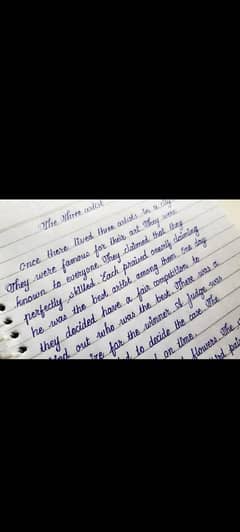 The three artist
Once there lived three artists in a city.
They were famous for their art. They were
known to everyone. They claimed that they
perfectly skilled. Each praised oneself claiming
he was the best artist among them. One day
they decided have a fair competition to
out who was the best. There was a
for the winner. A judge was
to decide the case. The
an time.
flowers. The